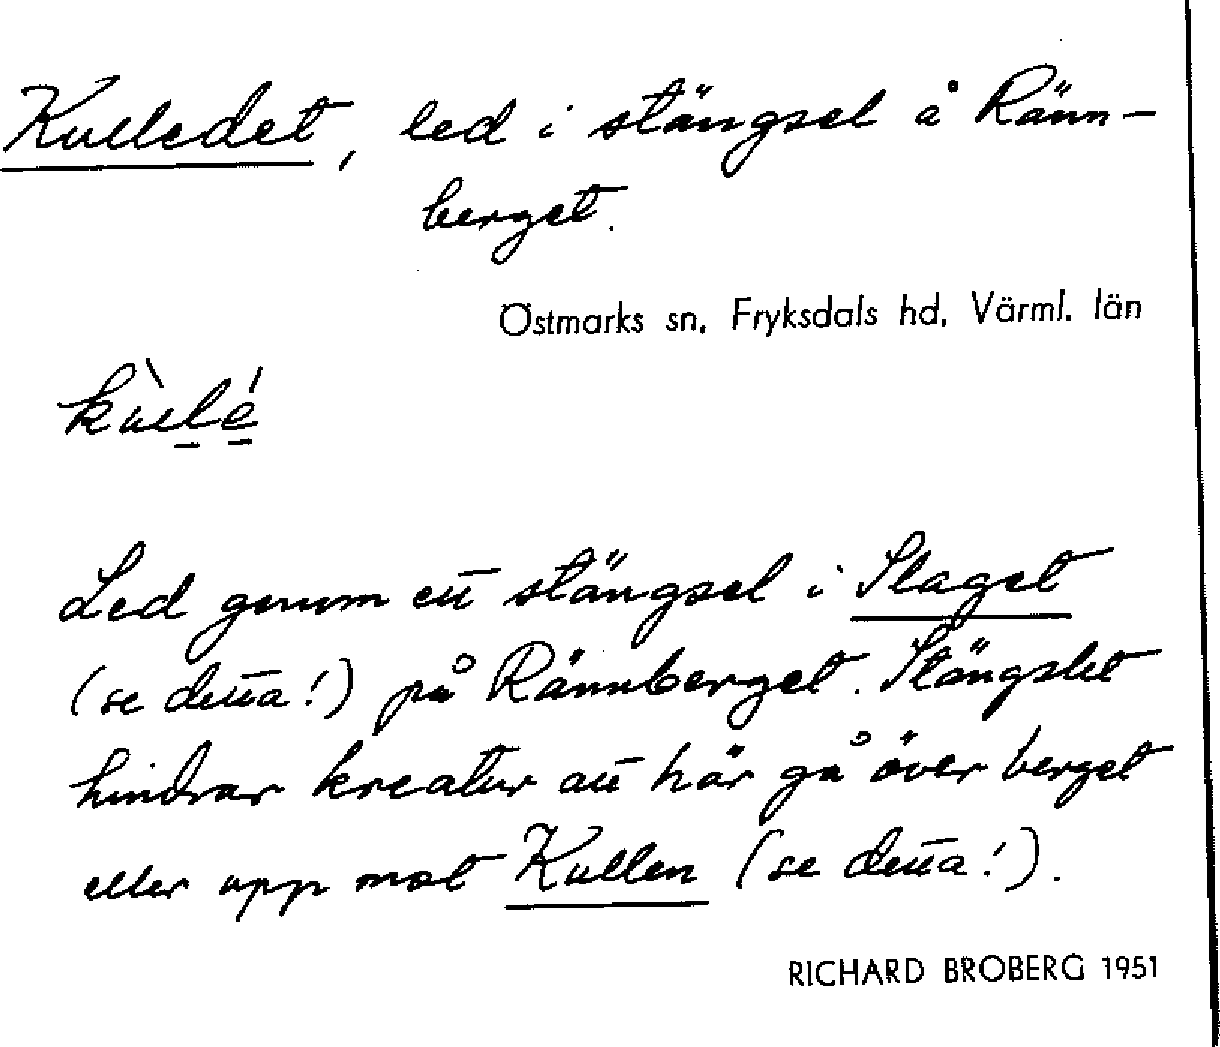 Kulledet, led i stängsel å Ränn-
berget.
Östmarks sn, Fryksdals hd, Värml. län
kùlé
Led genom ett stängsel i Slaget
(se detta!) på Rännberget. Stängslet
hindrar kreatur att här gå över berget
eller upp mot Kullen (se detta!).
RICHARD BROBERG 1951